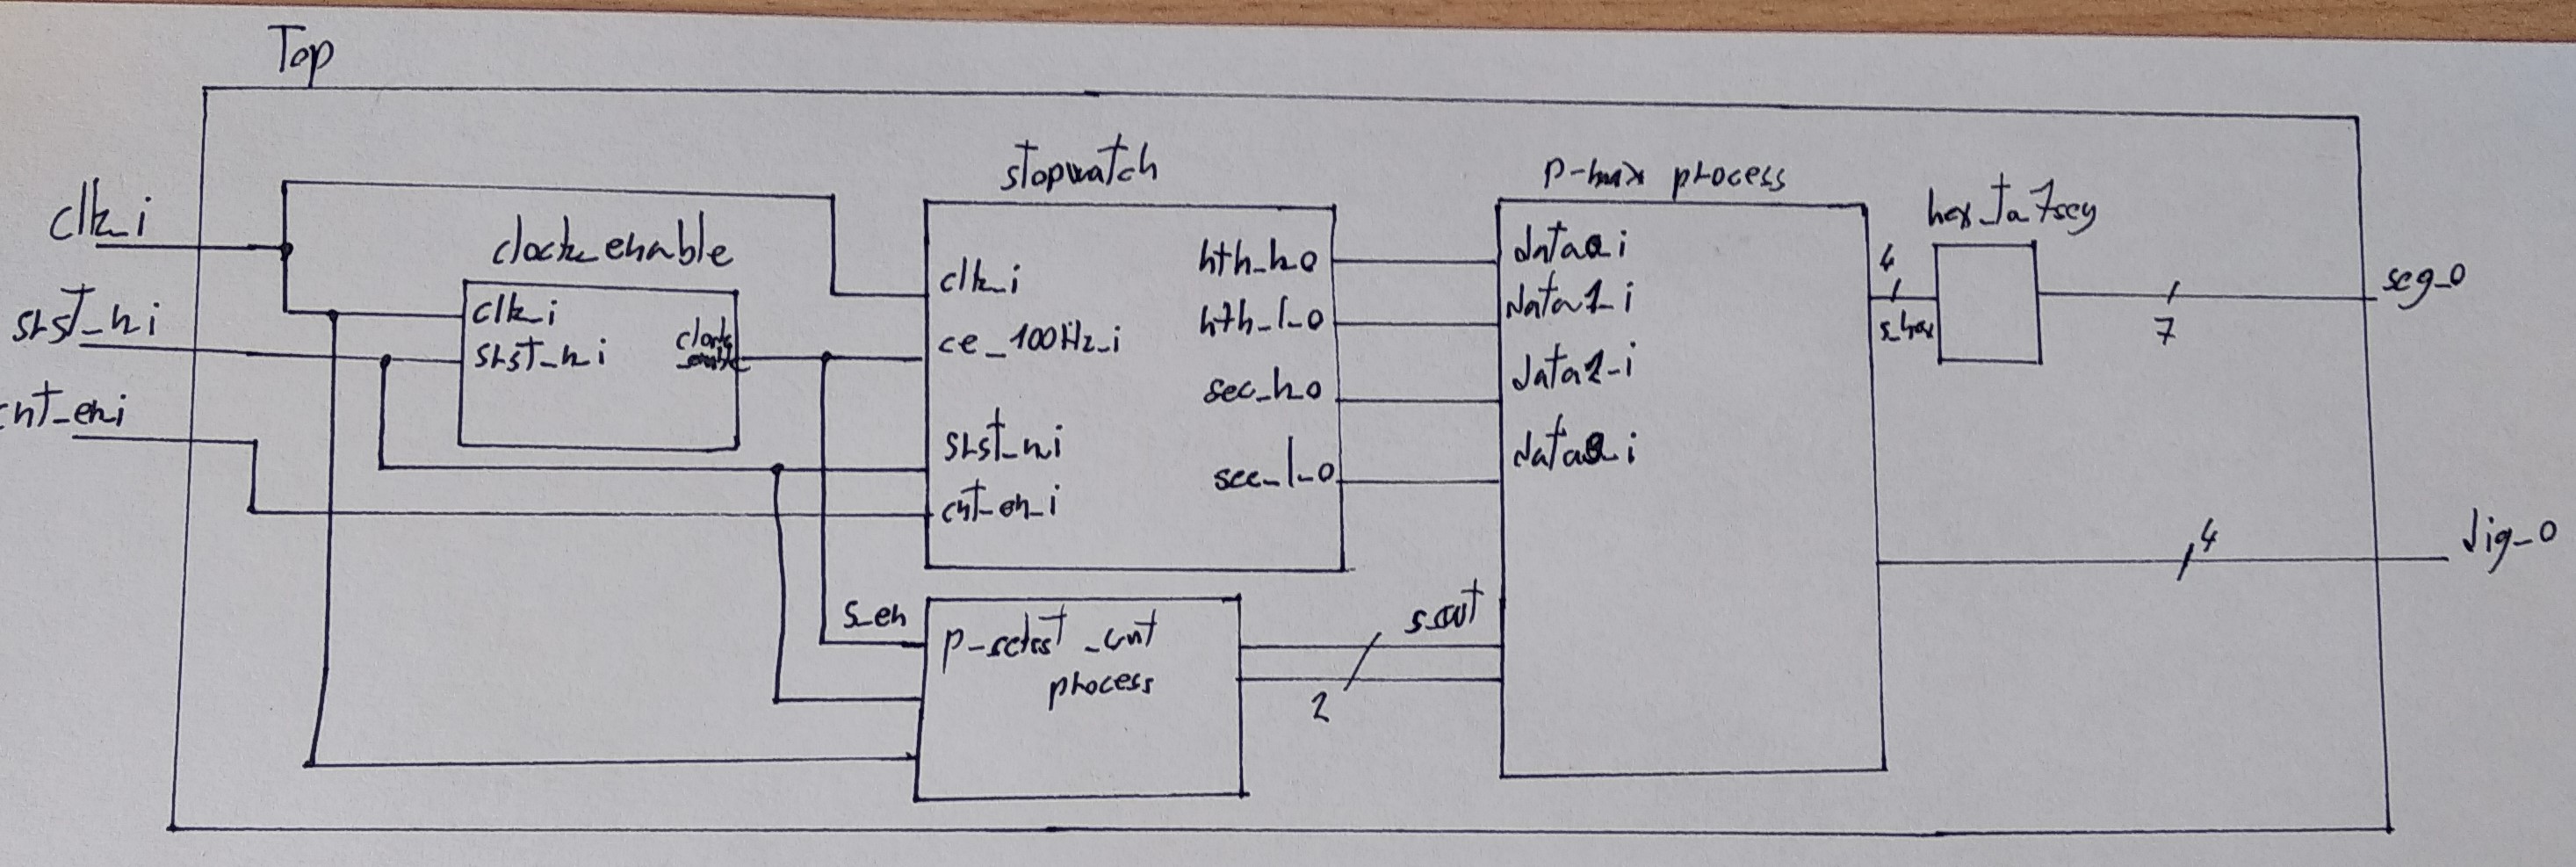 Top
clk_i
srst_n_i
cnt_en_i
clock_enable
clk_i
srst_n_i
clock
enable
stopwatch
clk_i
ce_100Hz_i
srst_n_i
cnt_en_i
hth_h_o
hth_l_o
sec_h_o
sec_l_o
s_en
p_select_cnt
process
s_cnt
2
p-mux process
data1_i
4
s_hex
hex_to_7seg
7
seg_o
4
dig_o